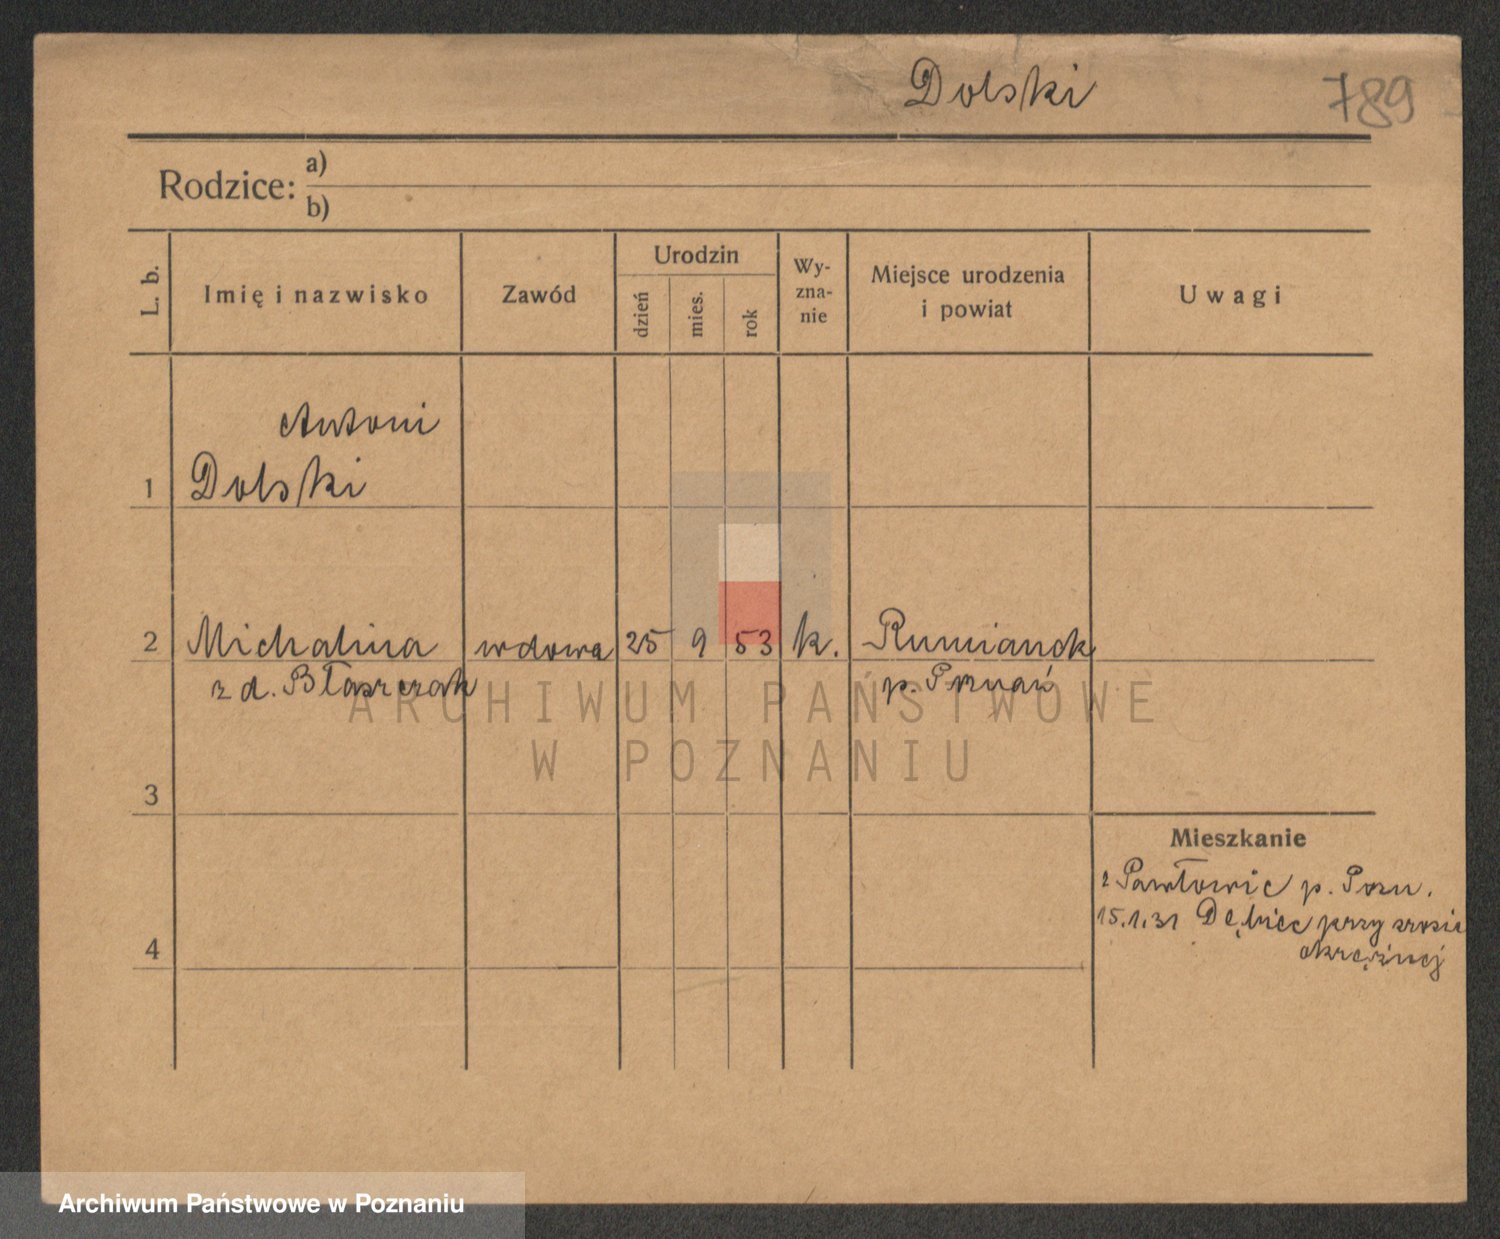 Dolski 789
Rodzice: a)
b)
L. b.
Imię i nazwisko
Zawód
Urodzin
dzień
mies.
rok
Wy-
zna-
nie
Miejsce urodzenia
i powiat
Uwagi
Antoni
1 Dolski
2 Michalina wdowa 25 9 53 k. Rumianek
z d. Błaszczak p. Poznań
ARCHIWUM PAŃSTWOWE
W POZNANIU
3
Mieszkanie
z Pawłowic p. Pozn.
15.1.31 Dębiec przy szosie
4 okrężnej
Archiwum Państwowe w Poznaniu